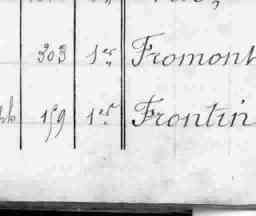 303 1er Fromont
159 1er Frontin